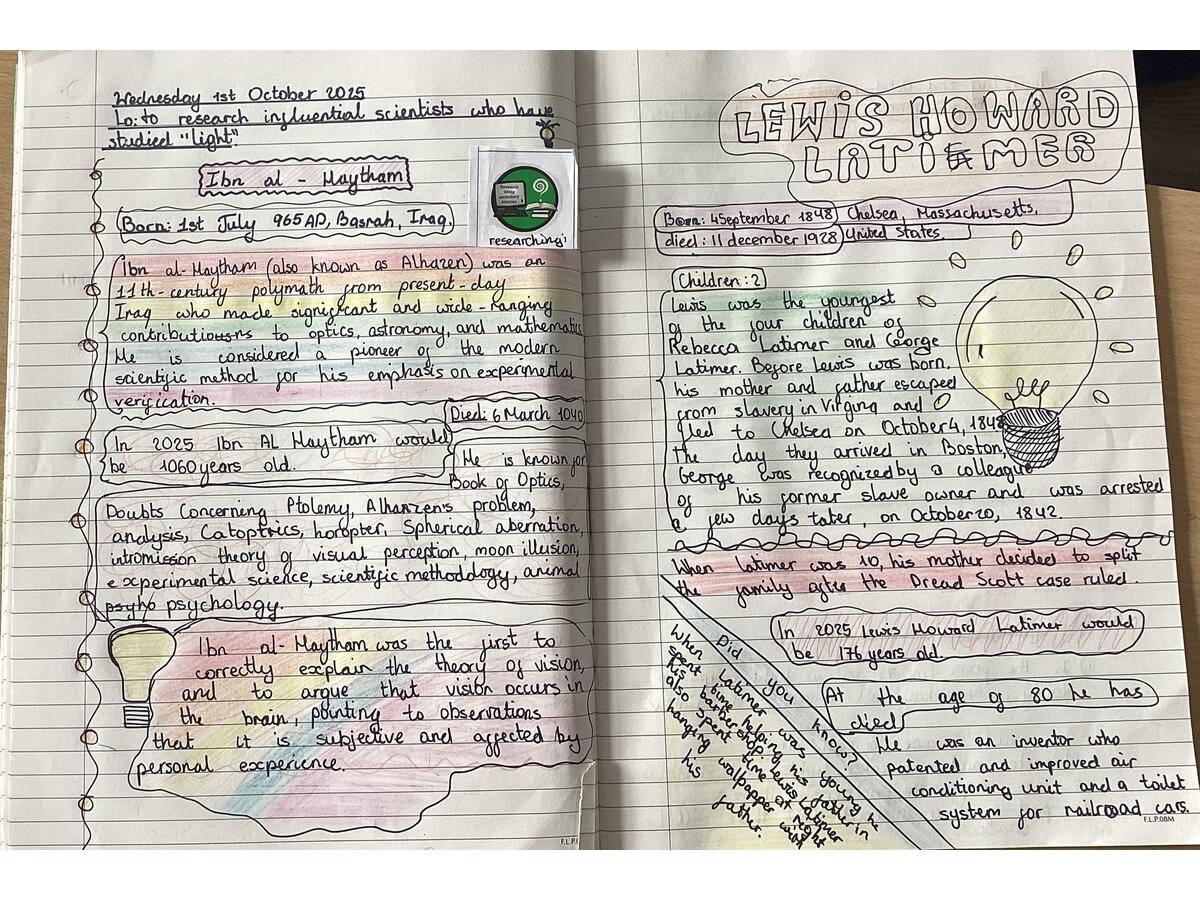 Wednesday 1st October 2025
Lo: to research influential scientists who have
studied "light"
Ibn al-Haytham
Research
using
secondary
sources
researching!
Born: 1st July 965AD, Basrah, Iraq.
Ibn al-Haytham (also known as Alhazen) was an
11th-century polymath from present-day
Iraq who made significant and wide-ranging
contributiousns to optics, astronomy, and mathematics.
He is considered a pioneer of the modern
scientific method for his emphasis on experimental
verification.
Died: 6 March 1040
In 2025 Ibn AL Haytham would
be 1060 years old.
He is known for
Book of Optics,
Doubts Concerning Ptolemy, Alhanzen's problem,
analysis, Catoptrics, horopter, Spherical aberration,
intromission theory of visual perception, moon illusion,
experimental science, scientific methodology, animal
psyho psychology.
Ibn al-Haytham was the first to
correctly explain the theory of vision,
and to argue that vision occurs in
the brain, pointing to observations
that it is subjective and affected by
personal experience.
LEWIS HOWARD
LATIMER
Born: 4 September 1848 Chelsea, Massachusetts,
died: 11 december 1928 United States.
Children: 2
Lewis was the youngest
of the four children of
Rebecca Latimer and George
Latimer. Before Lewis was born,
his mother and father escaped
from slavery in Virging and
fled to Chelsea on October 4, 1842
the day they arrived in Boston,
George was recognized by a colleague
of his former slave owner and was arrested
a few days tater, on October 20, 1842.
When latimer was 10, his mother decided to split
the family after the Dread Scott case ruled.
In 2025 Lewis Howard Latimer would
be 176 years old.
At the age of 80 he has
died
Did you know?
When Latimer was young he
spent time helping his father in
his barbershop. Lewis Latimer
also spent time at night
hanging wallpapper with
his father.
He was an inventor who
patented and improved air
conditioning unit and a toilet
system for railroad cars.
F.L.P.08M